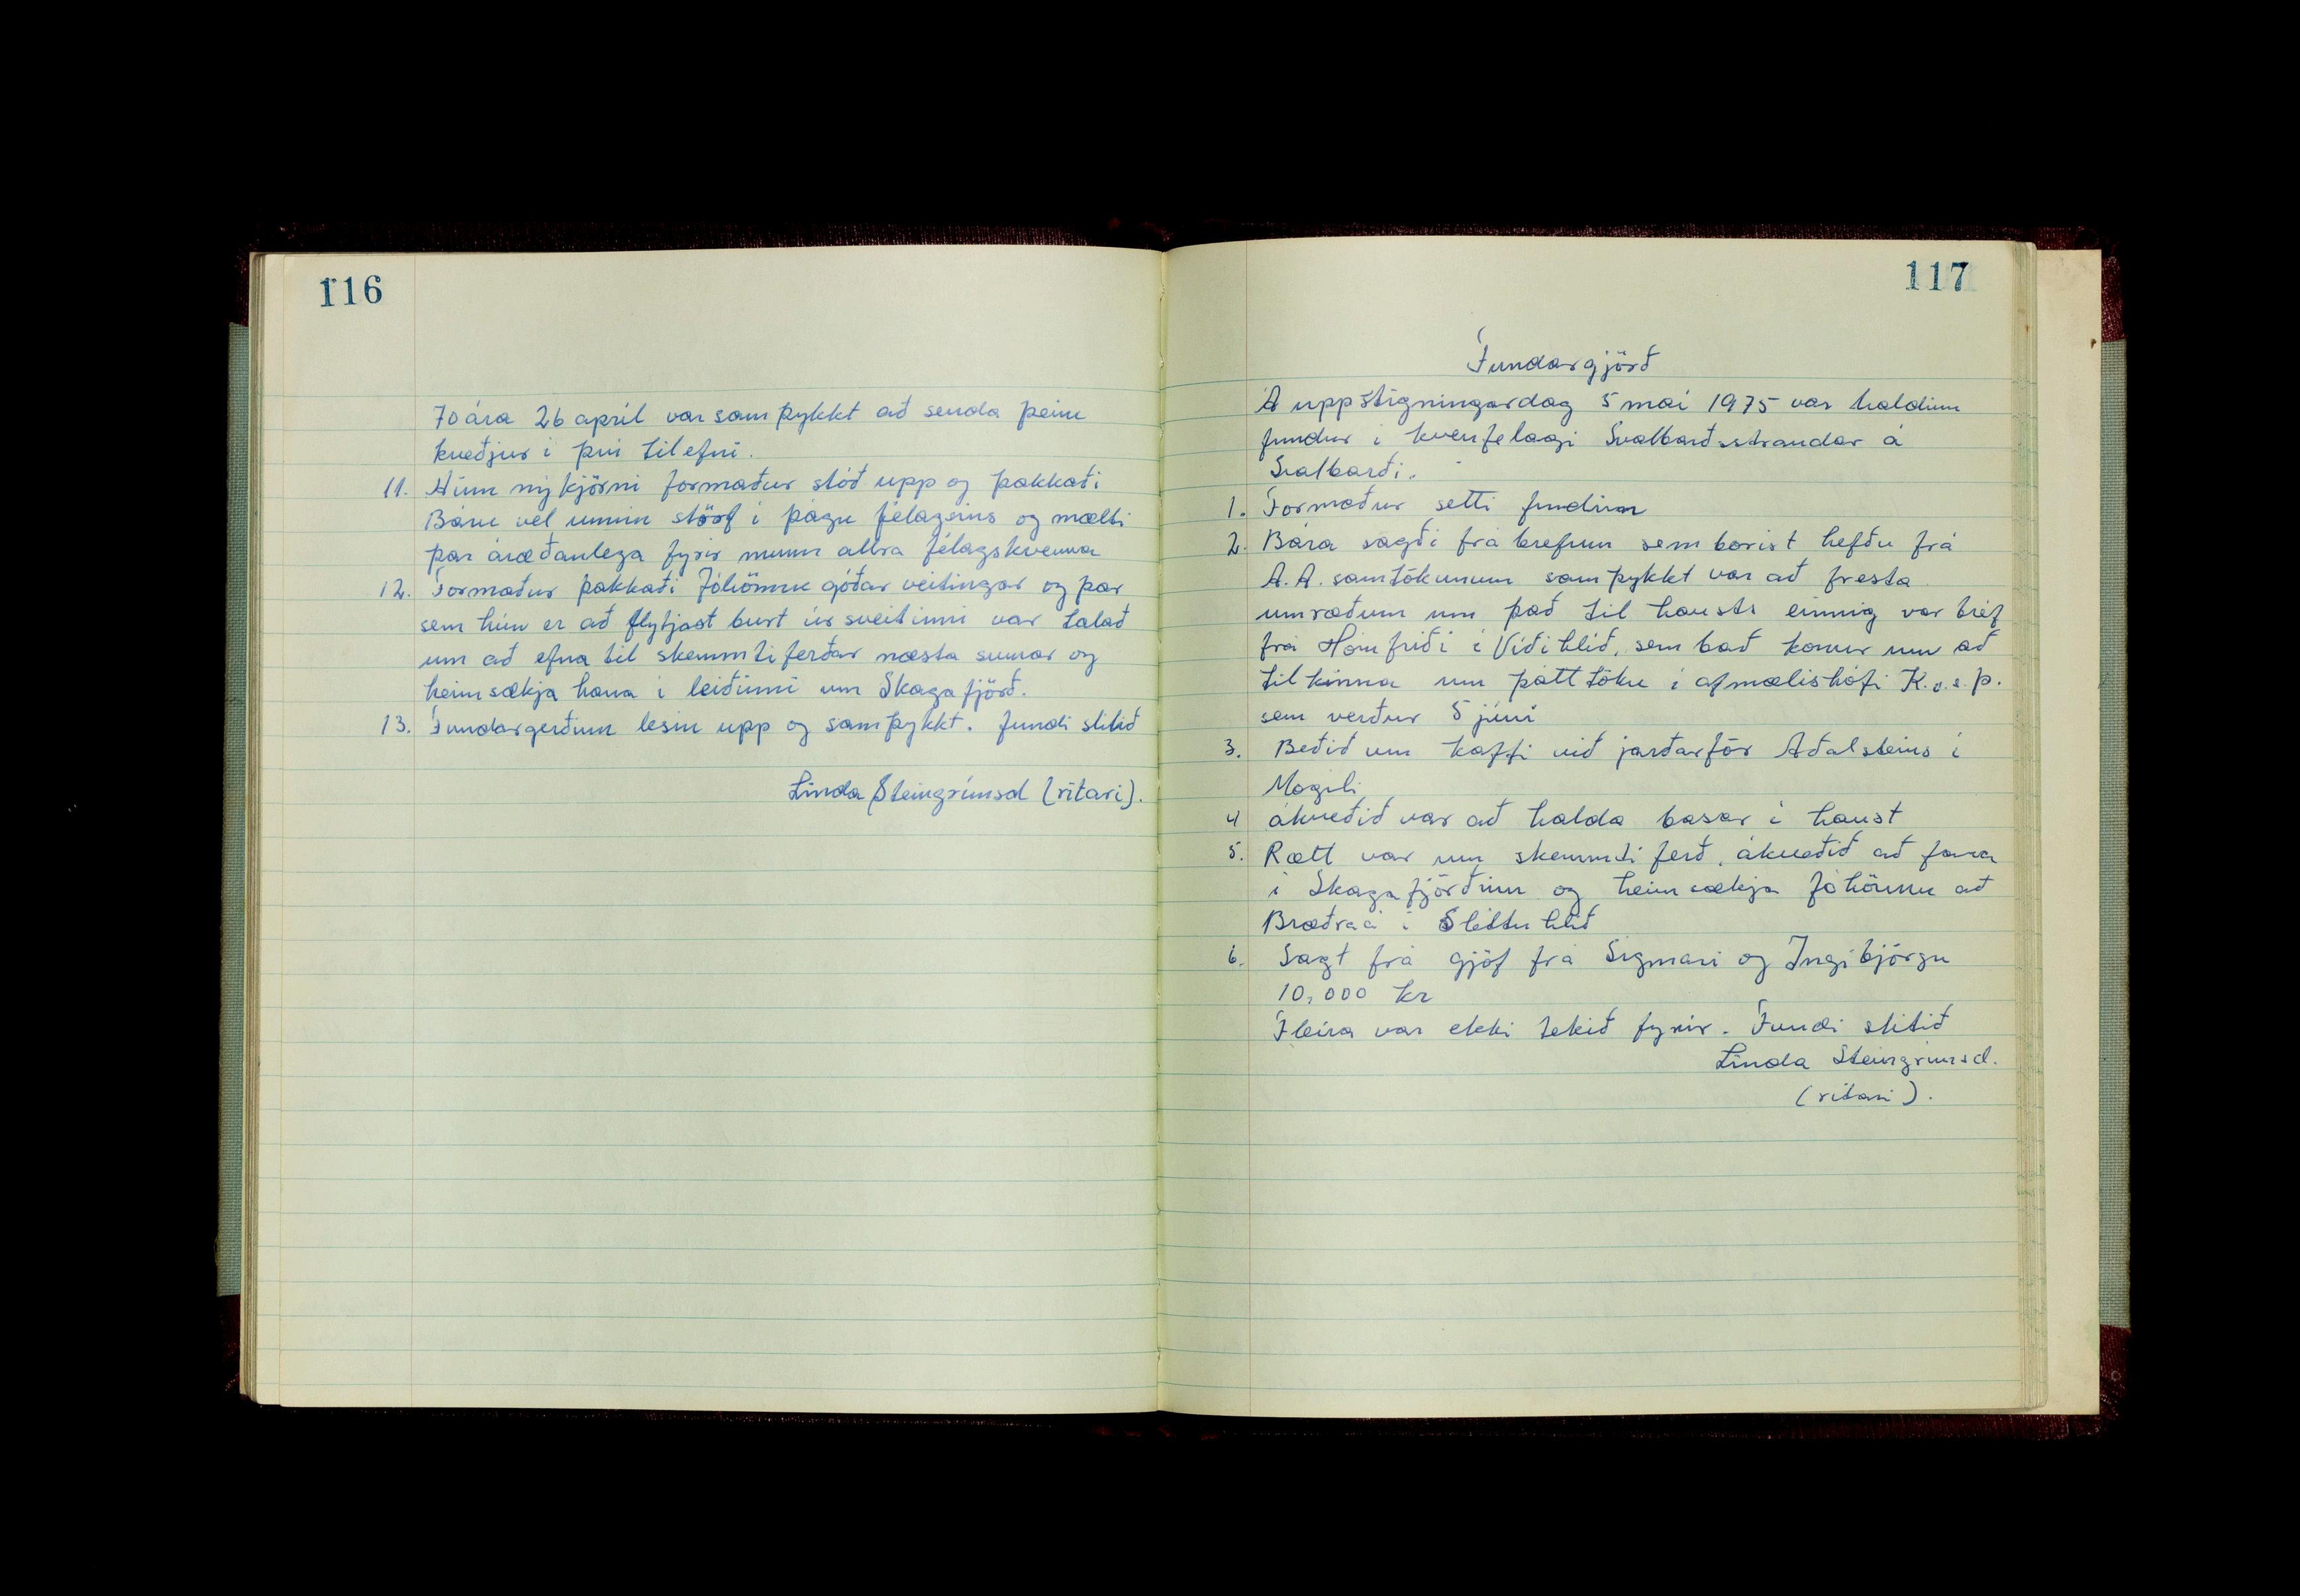 116
70 ára 26 apríl var samþykkt að senda þeim
kveðjur í því tilefni.
11. Hinn nýkjörni formaður stóð upp og þakkaði
Báru vel unnin störf í þágu félagsins og mælti
þar áræðanlega fyrir munn allra félagskvenna
12. Formaður þakkaði Jóhönnu góðar veitingar og þar
sem hún er að flytjast burt úr sveitinni var talað
um að efna til skemmtiferðar næsta sumar og
heimsækja hana í leiðinni um Skagafjörð.
13. Fundargerðinn lesin upp og samþykkt. fundi slitið
Linda Steingrímsd (ritari).
117
Fundargjörð
Á uppstigningardag 5 mai 1975 var haldinn
fundur í kvenfelagi Svalbarðsstrandar á
Svalbarði.
1. Formaður setti fundinn
2. Bára sagði frá brefum sem borist hefðu frá
A.A. samtökunum samþykkt var að fresta
umræðum um það til hausts einnig var bréf
frá Hólmfriði í Víðihlíð, sem bað konur um að
tilkinna um þátttöku í afmælishófi K.s.s.þ.
sem verður 5 júní
3. Beðið um kaffi við jarðarför Aðalsteins í
Mógili
4 ákveðið var að halda basar í haust
5. Rætt var um skemmtiferð, ákveðið að fara
í Skagafjörðinn og heimsækja Jóhönnu að
Bræðraá í Sléttuhlíð
6. Sagt frá gjöf frá Sigmari og Ingibjörgu
10,000 kr
Fleira var ekki tekið fyrir. Fundi slitið
Linda Steingrímsd.
(ritari).